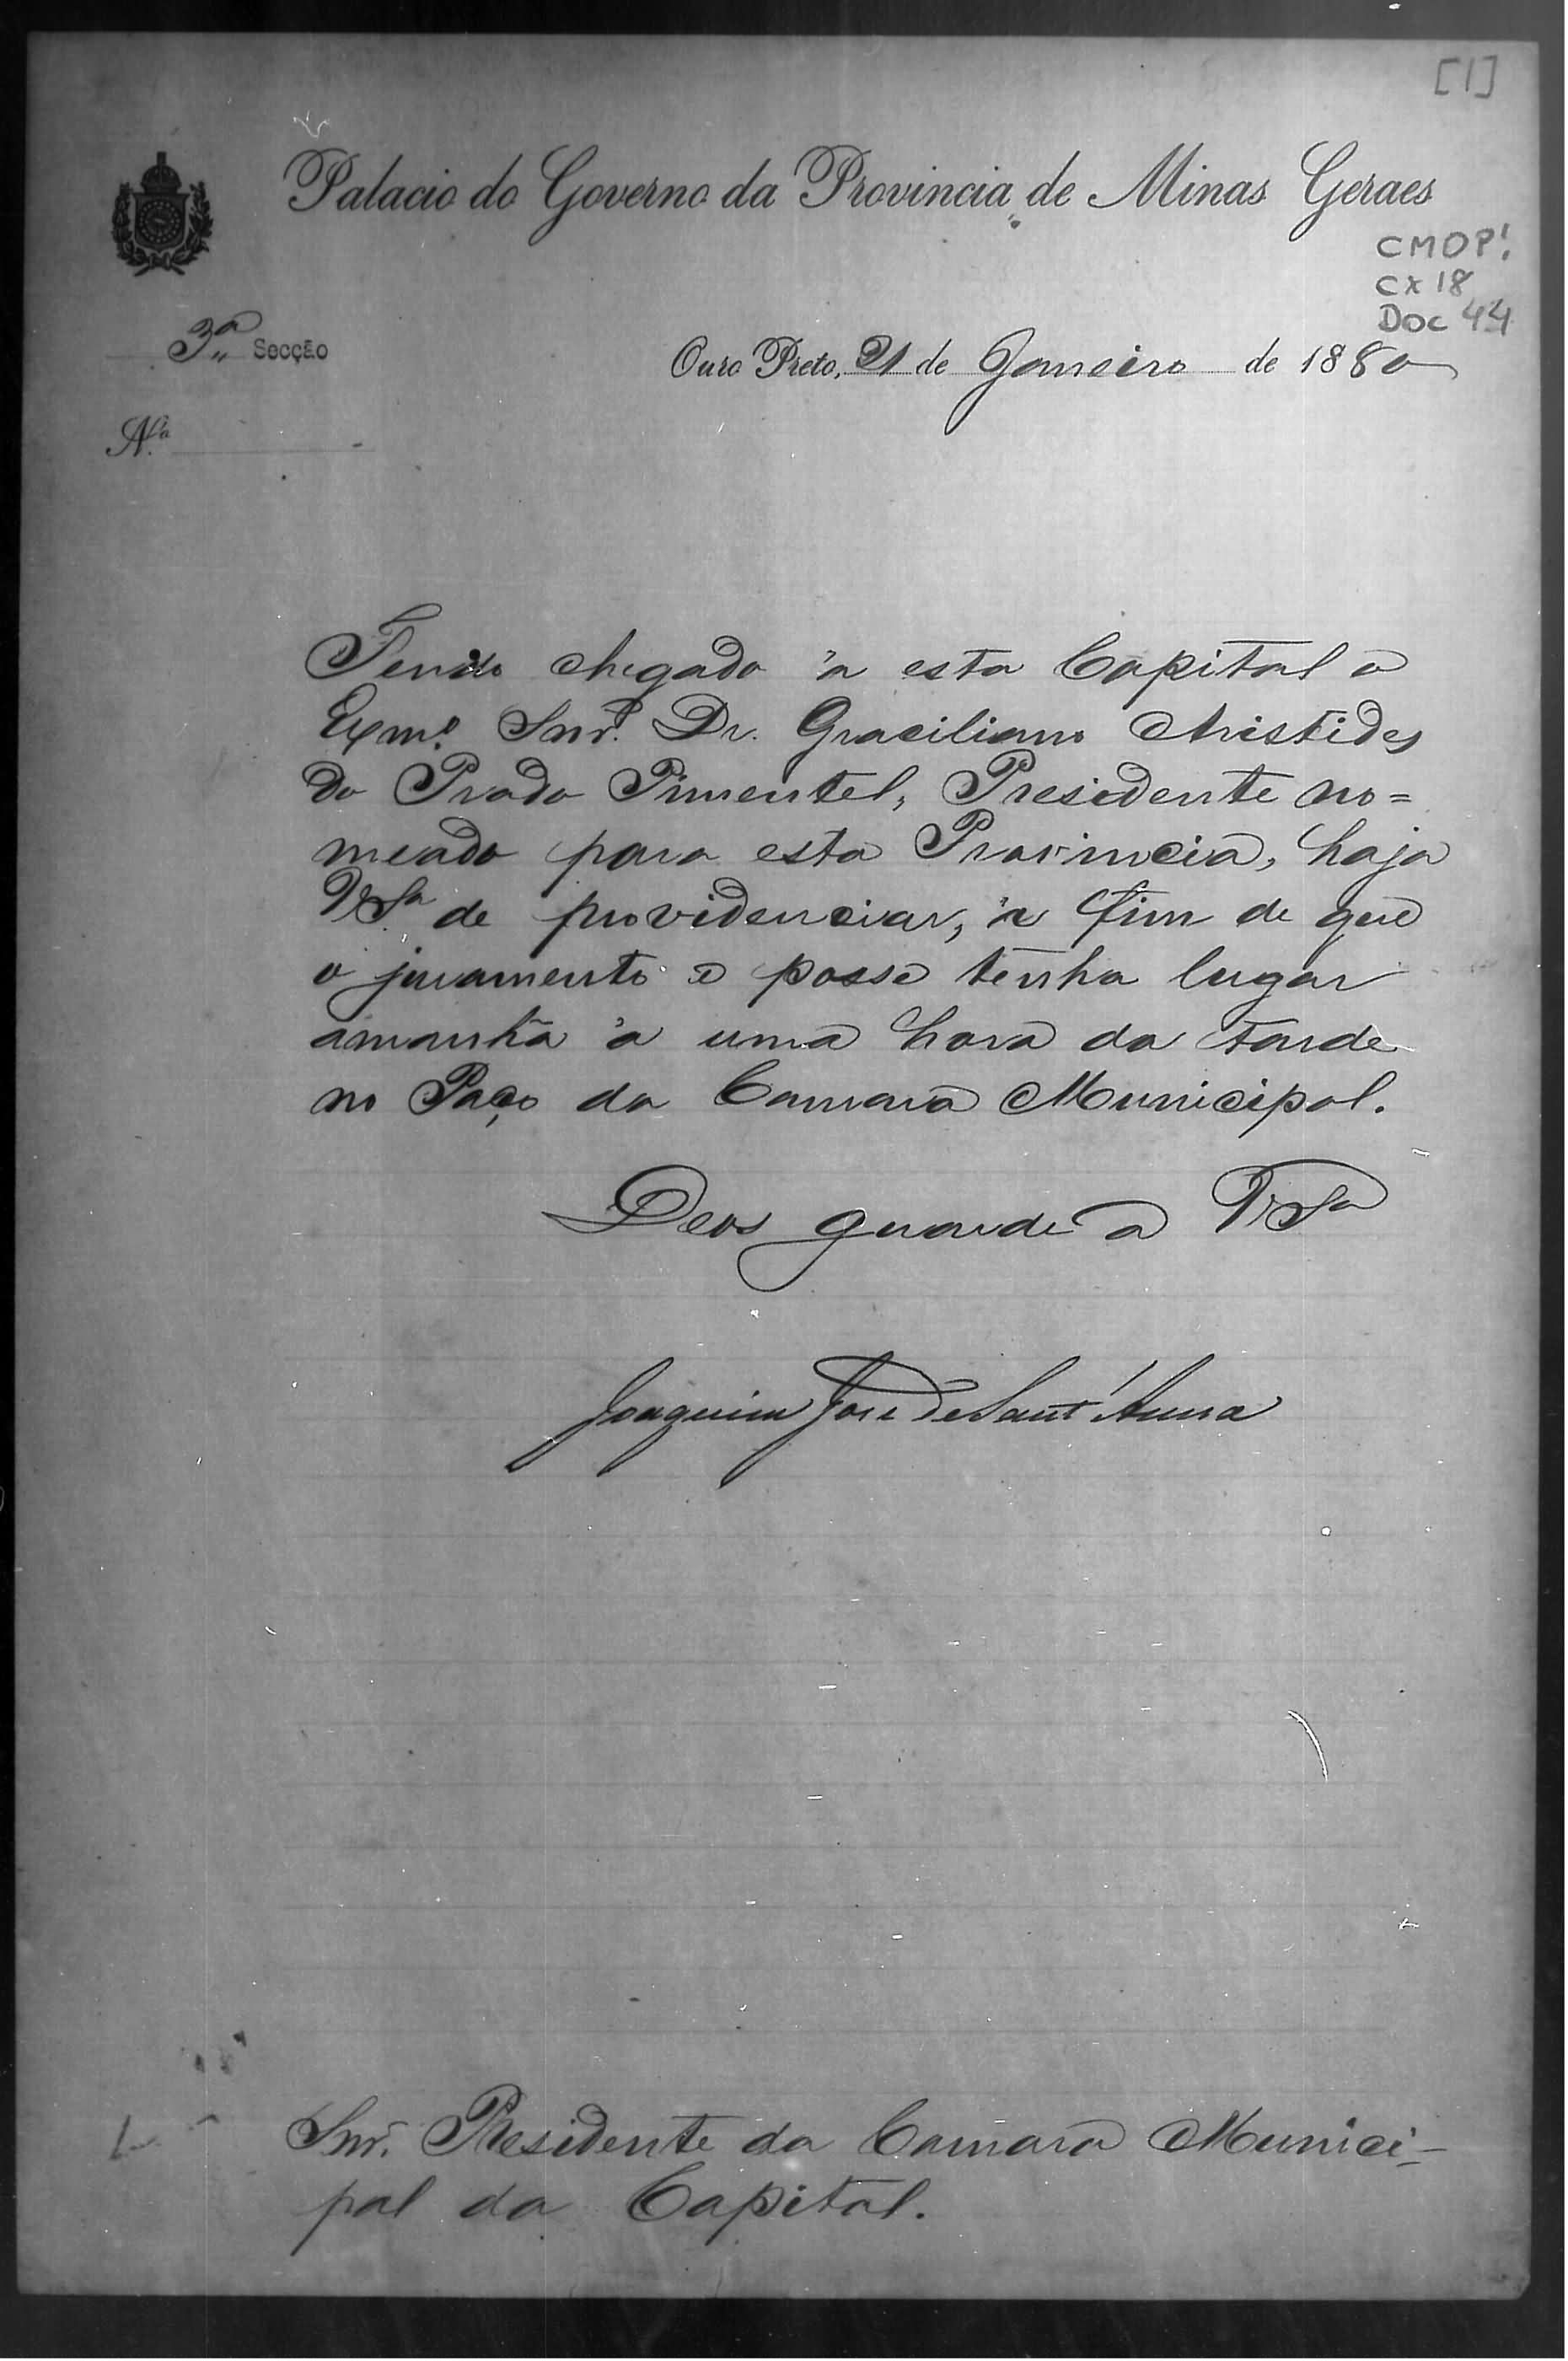 [1]
Palacio do Governo da Provincia de Minas Geraes
CMOP!
CX 18
DOC 44
3ª Secção
Ouro Preto, 21 de Janneiro de 1880
N.º
Tendo chegado á esta Capital o
Exmº Snr. Dr. Graciliano Aristides
do Prado Pimentel, Presidente no=
meado para esta Provincia, haja
V.Sª de providenciar, á fim de que
o juramento e posse tenha lugar
amanhã á uma hora da tarde
no Paço da Camara Municipal.
Deos guarde a VSª
Joaquim José de Sant'Anna
Snr. Presidente da Camara Munici-
pal da Capital.